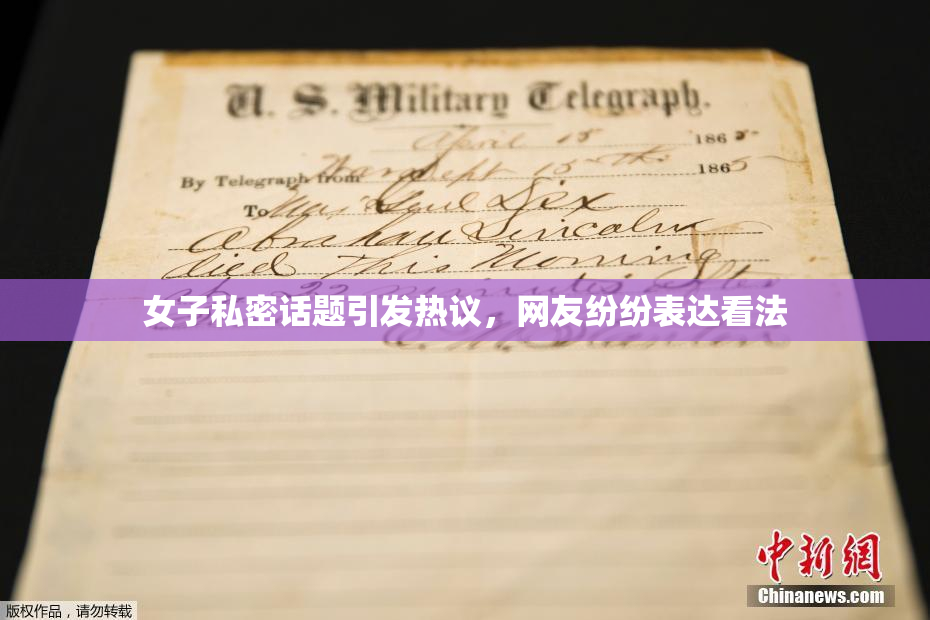 U. S. Military Telegraph.
April 15 1865
By Telegraph from War Dept 15th 1865
To Maj Genl Dix
Abraham Lincoln
died This Morning
22 minutes after
女子私密话题引发热议，网友纷纷表达看法
版权作品，请勿转载
中新网
Chinanews.com